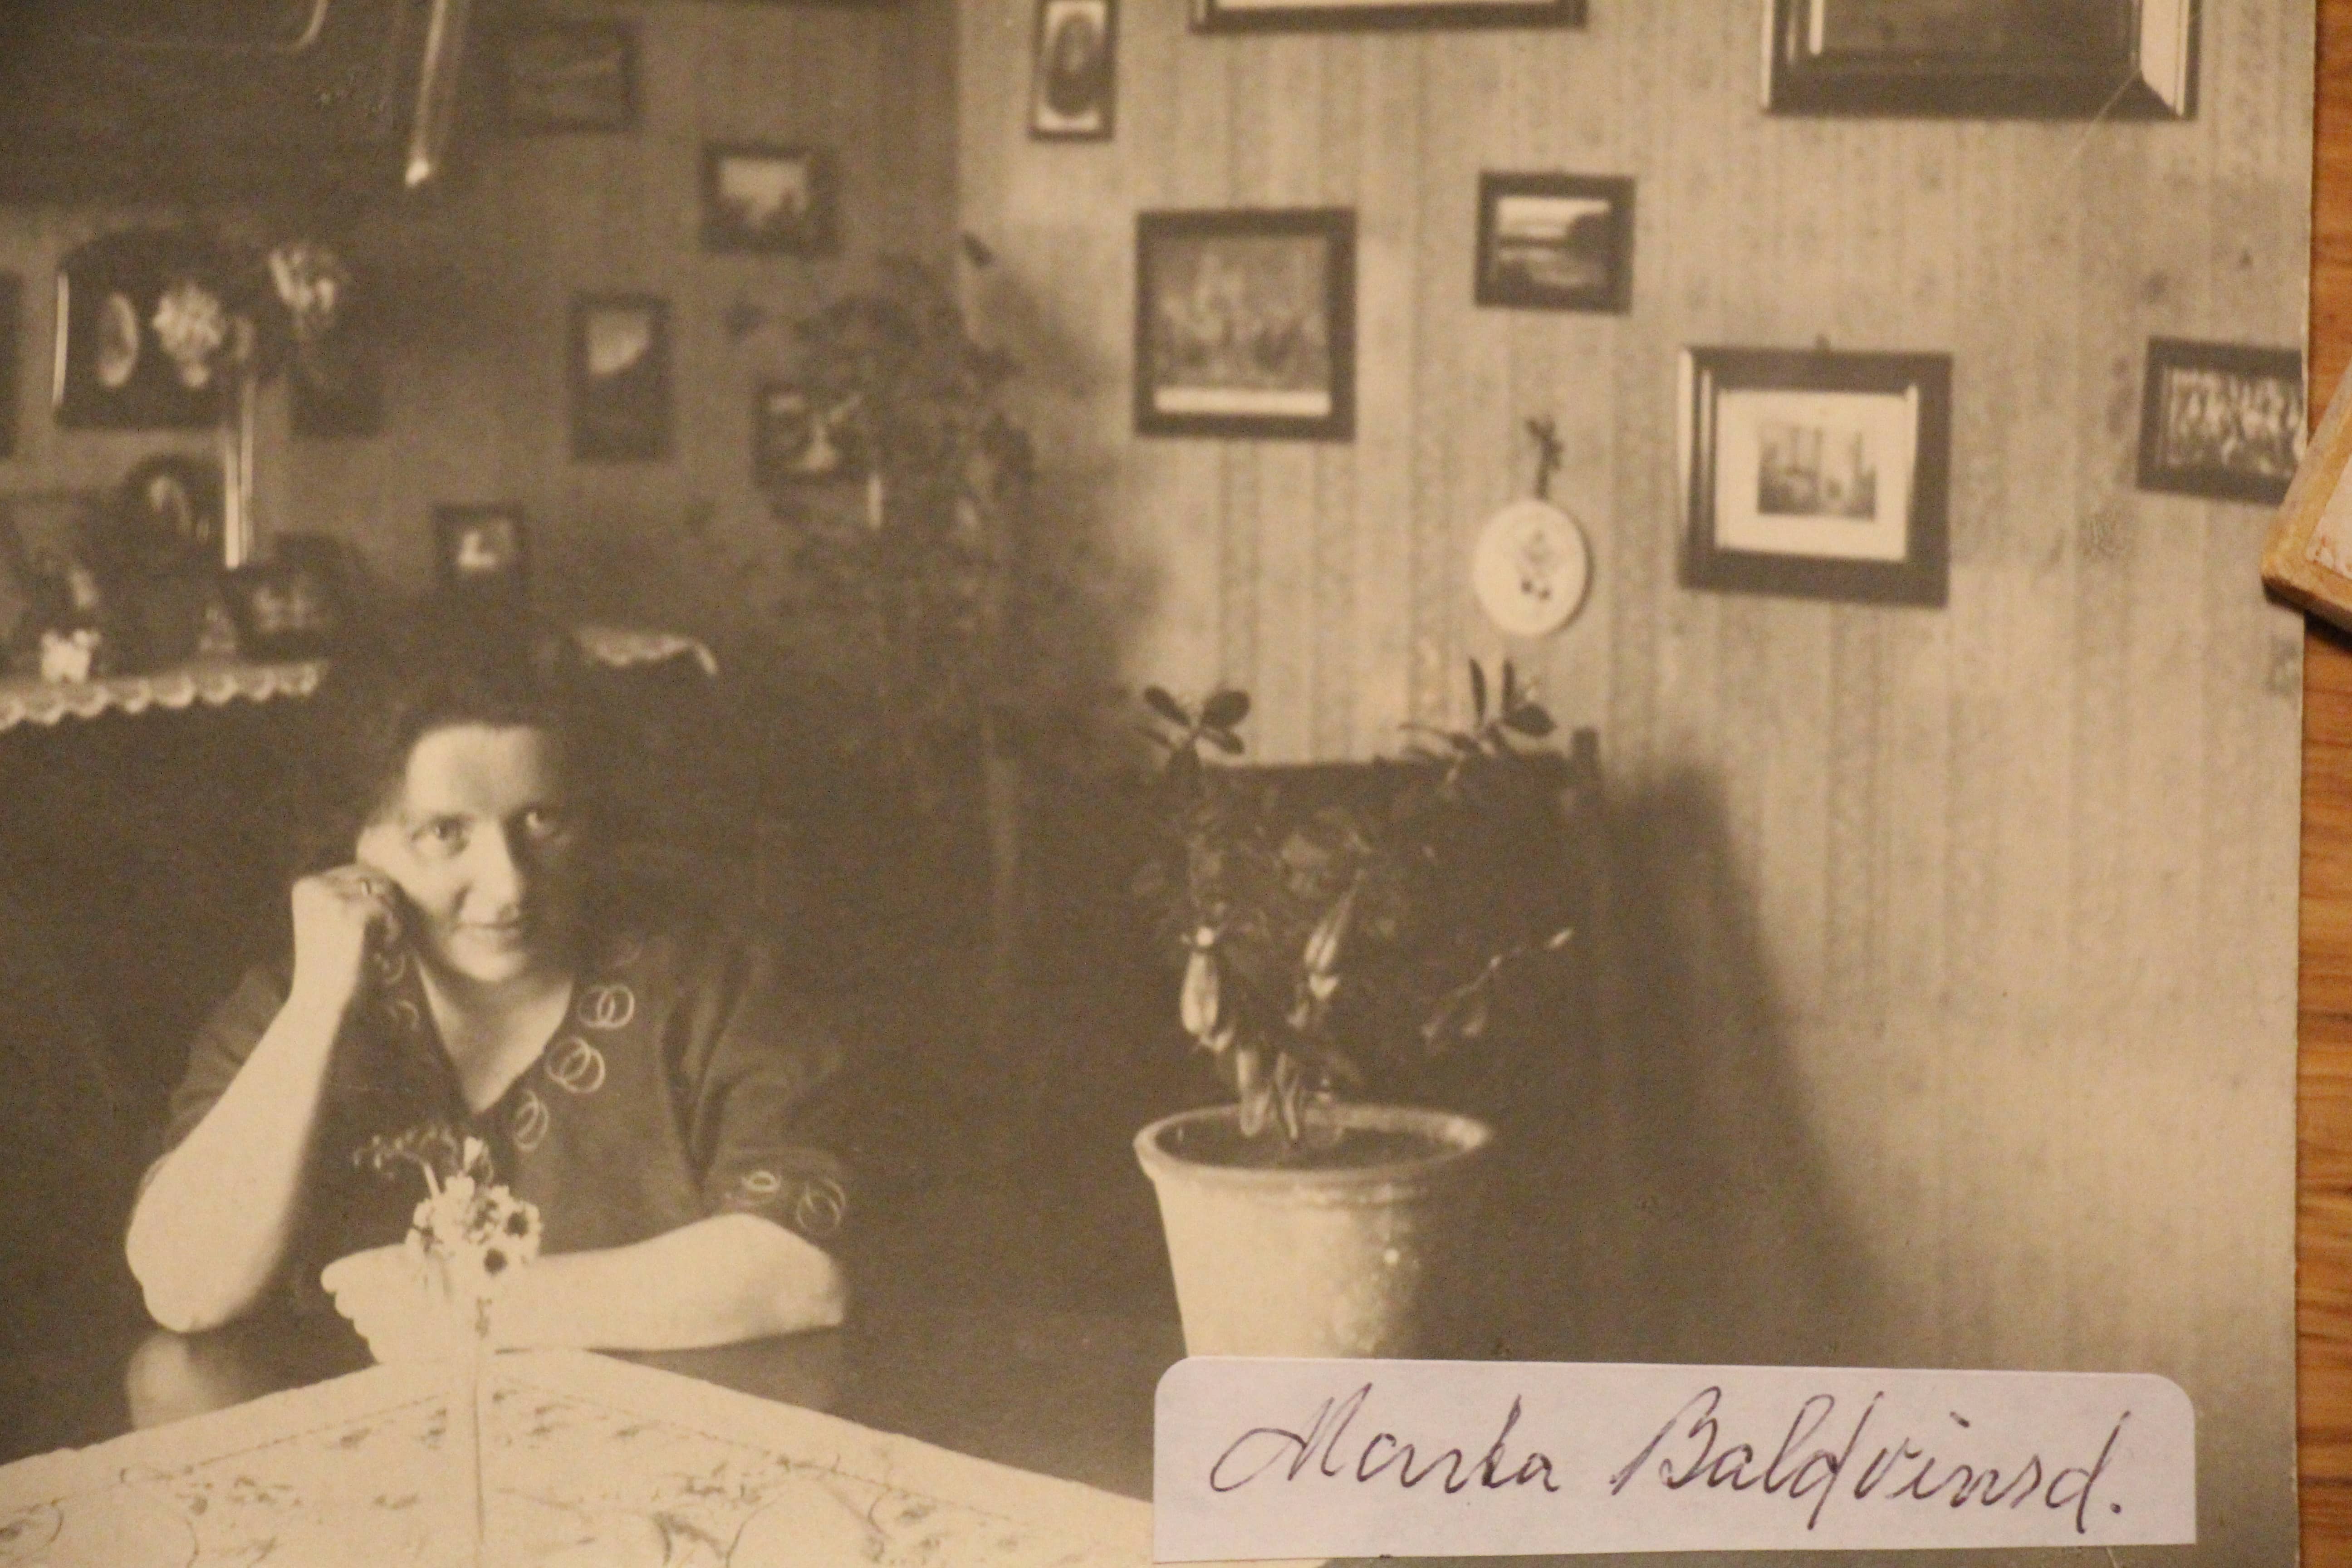 Marta Baldvinsd.